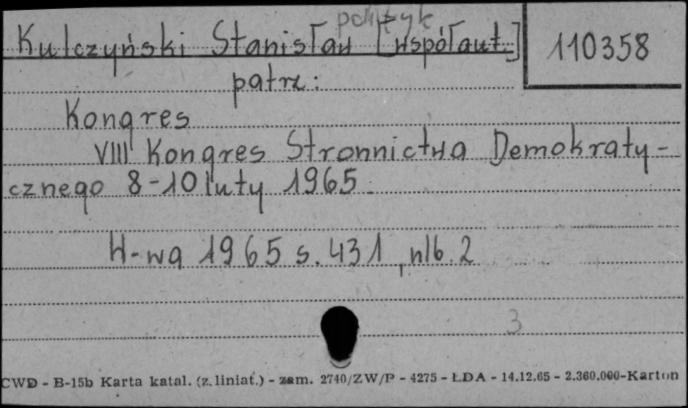 polityk
Kulczyński Stanisław [współaut.] 110358
patrz:
Kongres
VIII Kongres Stronnictwa Demokraty-
cznego 8-10 luty 1965.
W-wa 1965 s. 431, nlb. 2
3
CWD - B-15b Karta katal. (z. liniat.) - zam. 2740/ZW/P - 4275 - ŁDA - 14.12.65 - 2.360.000-Karton